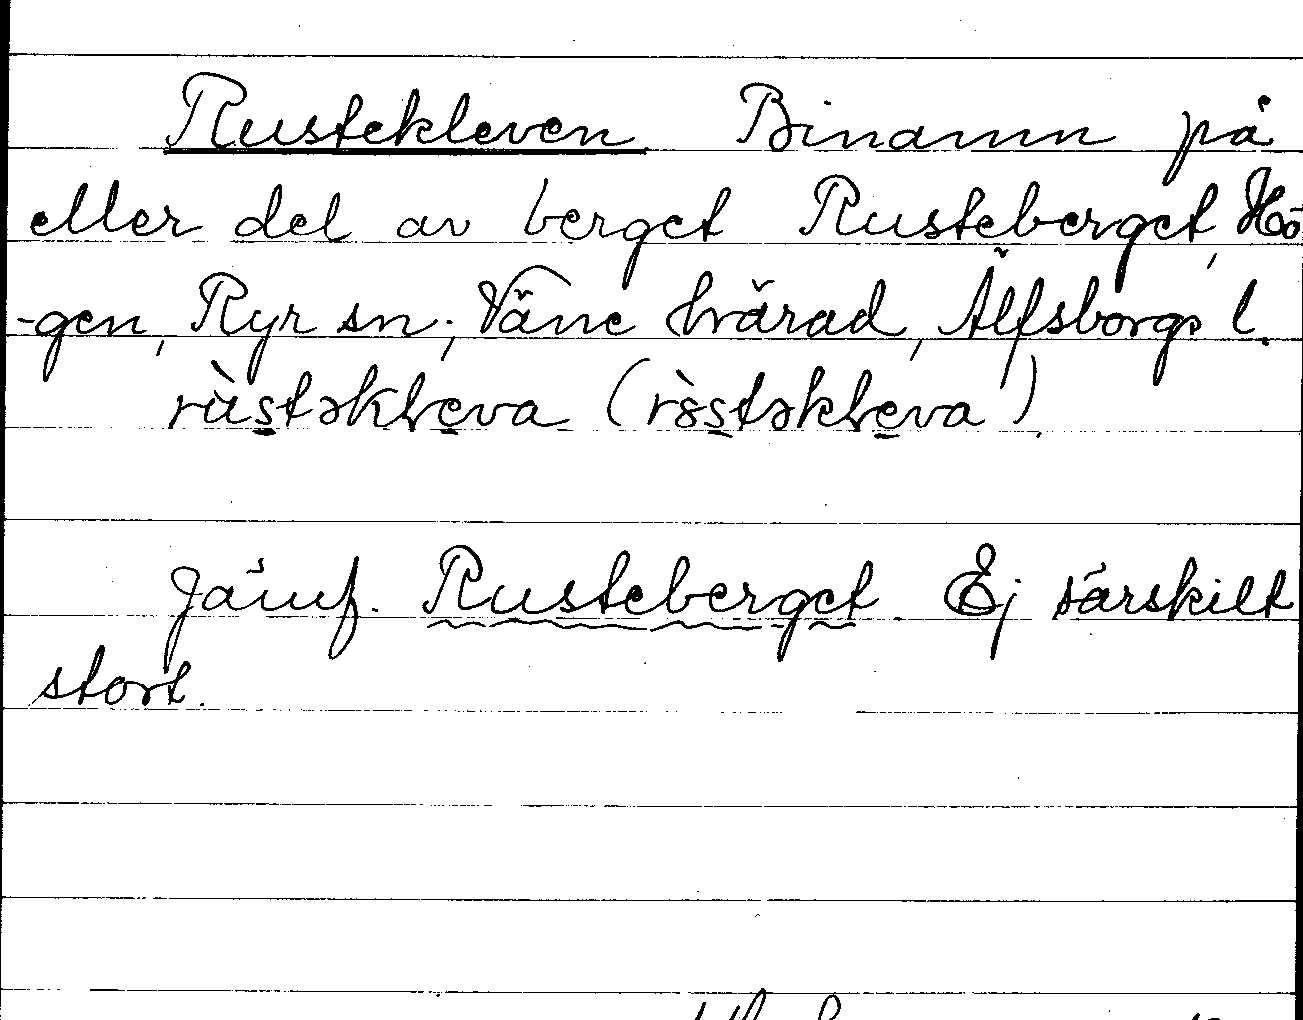 Rustekleven. Binamn på
eller del av berget Rusteberget, Hö
-gen, Ryr sn; Väne härad, Älfsborgs l.
rùstəkleva (ròstəkleva).
Jämf. Rusteberget. Ej särskilt
stort.